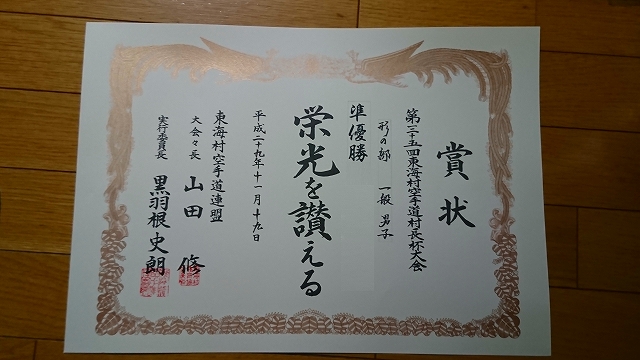 賞状
第三十五回東海村空手道村長杯大会
形の部 一般 男子
準優勝
栄光を讃える
平成二十九年十一月十九日
東海村空手道連盟
大会々長 山田 修
実行委員長 黒羽根史朗